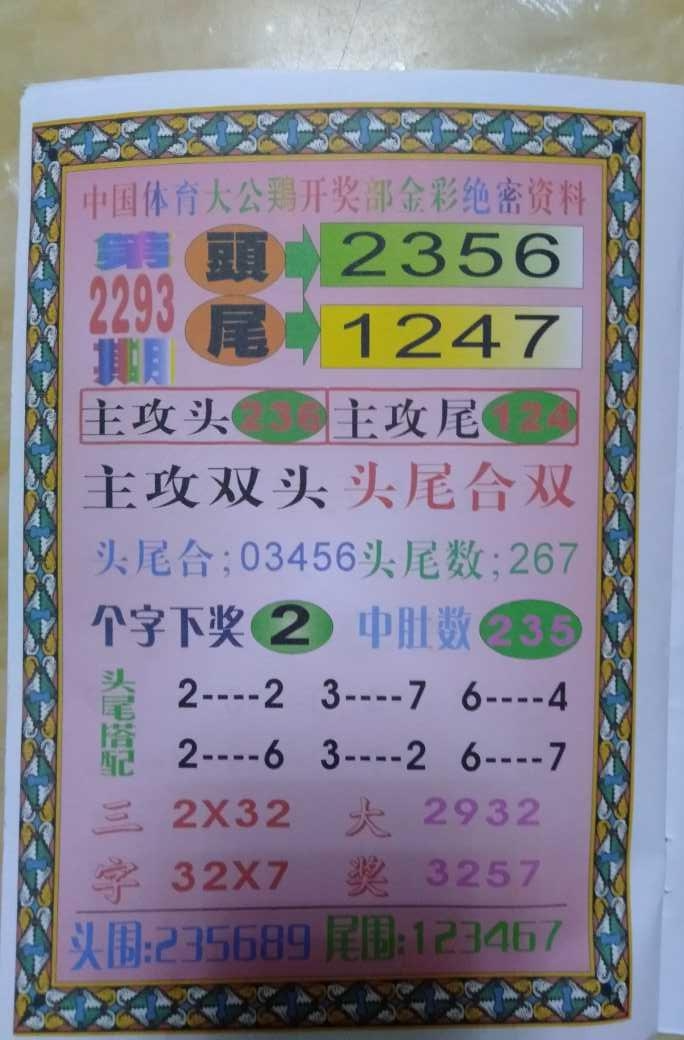 中国体育大公鸡开奖部金彩绝密资料
第2293期
頭 2356
尾 1247
主攻头236 主攻尾124
主攻双头 头尾合双
头尾合;03456 头尾数;267
个字下奖2 中肚数235
头尾搭配
2----2 3----7 6----4
2----6 3----2 6----7
三字 2X32 32X7
大奖 2932 3257
头围:235689 尾围:123467